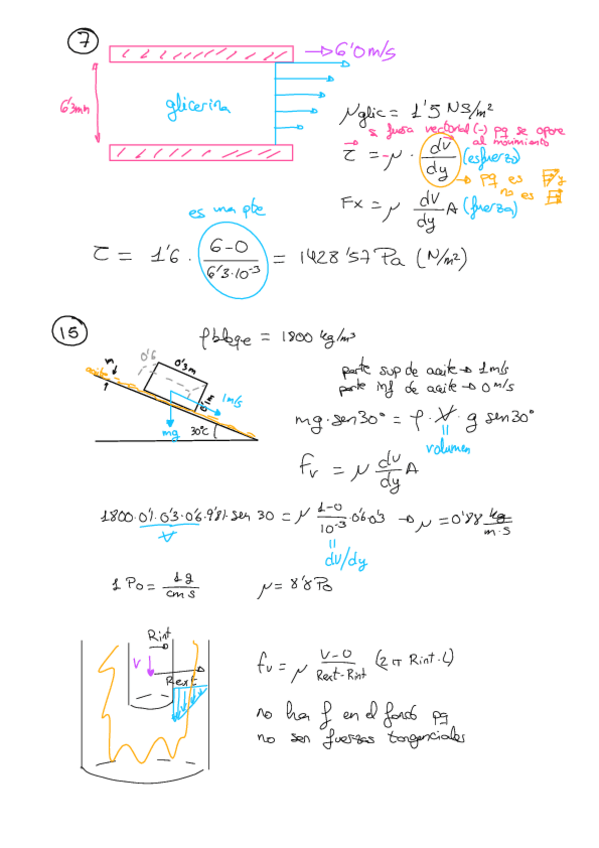 7
6'0 m/s
6'3mm
glicerina
μglic = 1'5 NS/m²
fuerza vectorial (-) pq se opone
al movimiento
τ = -μ · dv/dy (esfuerzo)
pq es
no es
Fx = μ dv/dy A (fuerza)
es una pte
τ = 1'6 · (6-0)/(6'3·10⁻³) = 1428'57 Pa (N/m²)
15
ρbloqe = 1800 kg/m³
aceite
0'6
0'3m
0'1m
1m/s
mg
30°C
parte sup de aceite → 1 m/s
parte inf de aceite → 0 m/s
mg·sen30° = ρ·V·g sen30°
volumen
Fv = μ dv/dy A
1800·0'1·0'3·0'6·9'81·sen 30 = μ (1-0)/10⁻³ ·0'6·0'3 → μ = 0'88 kg/m·s
V
dv/dy
1 Po = 1g/cm s
μ = 8'8 Po
Rint
V
Rext
fv = μ (V-0)/(Rext-Rint) (2π Rint·L)
no hay f en el fondo pq
no son fuerzas tangenciales